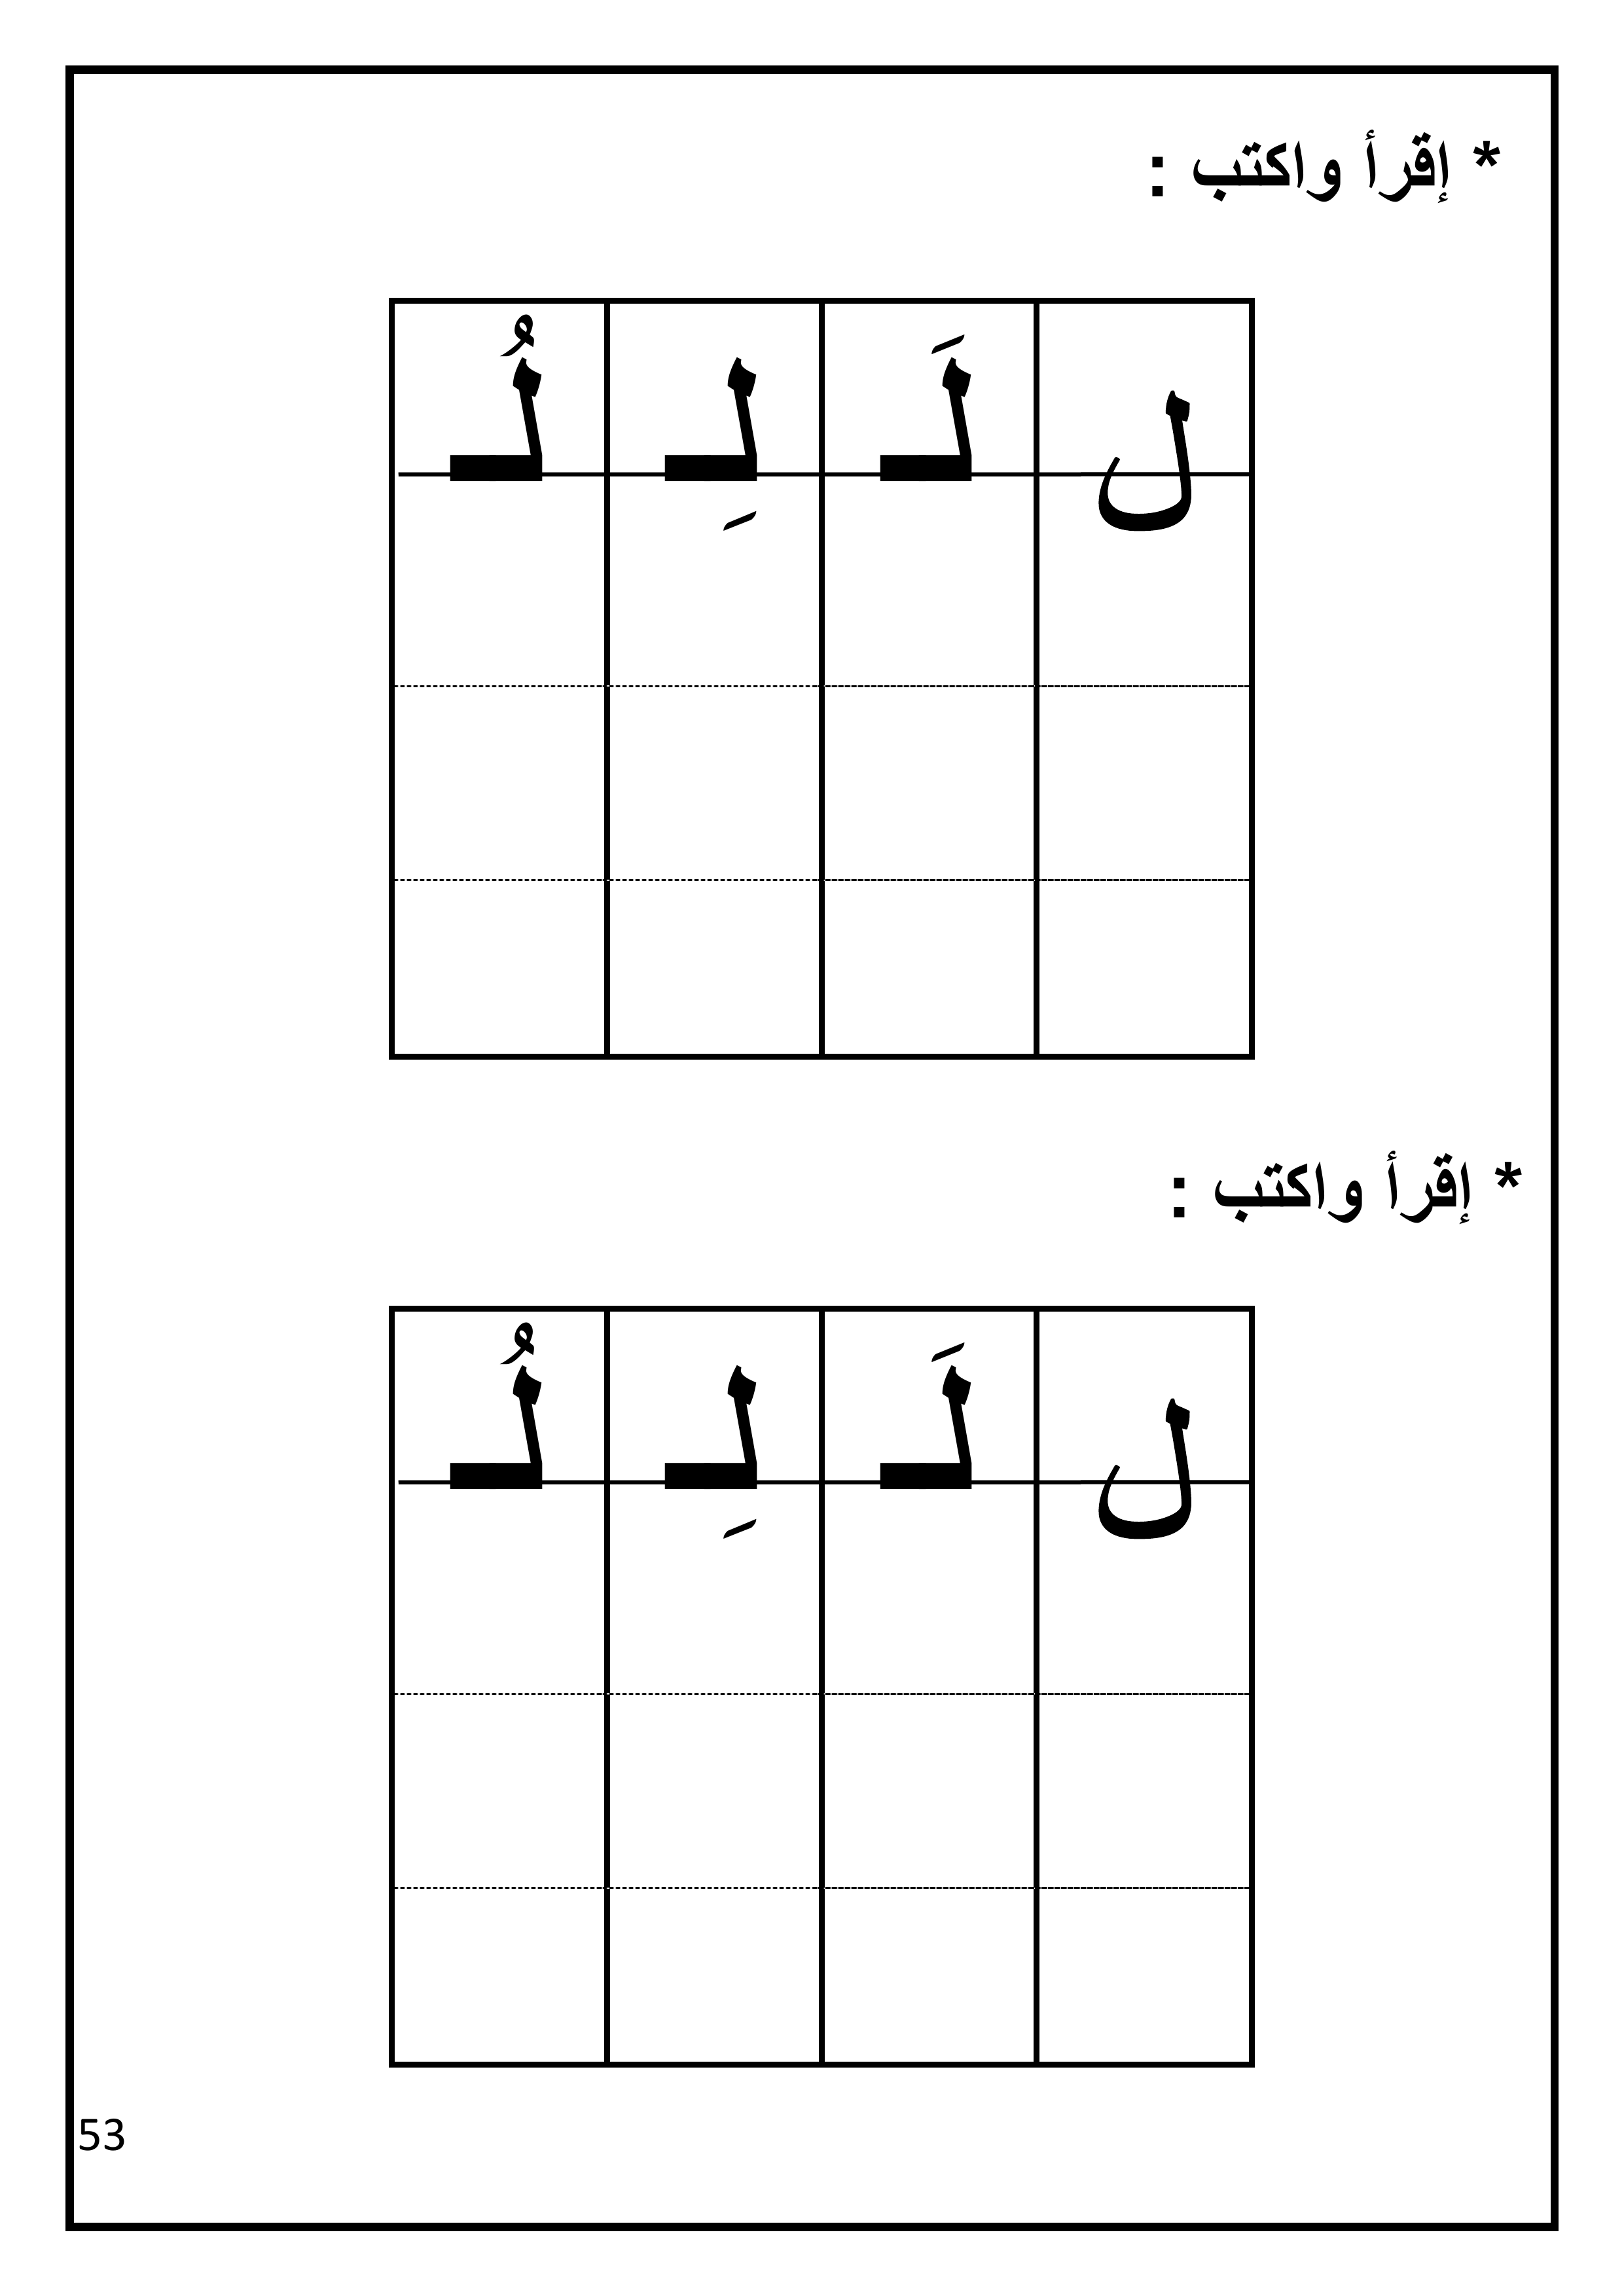 * إقرأ واكتب :
ل لَـ لِـ لُـ
* إقرأ واكتب :
ل لَـ لِـ لُـ
53